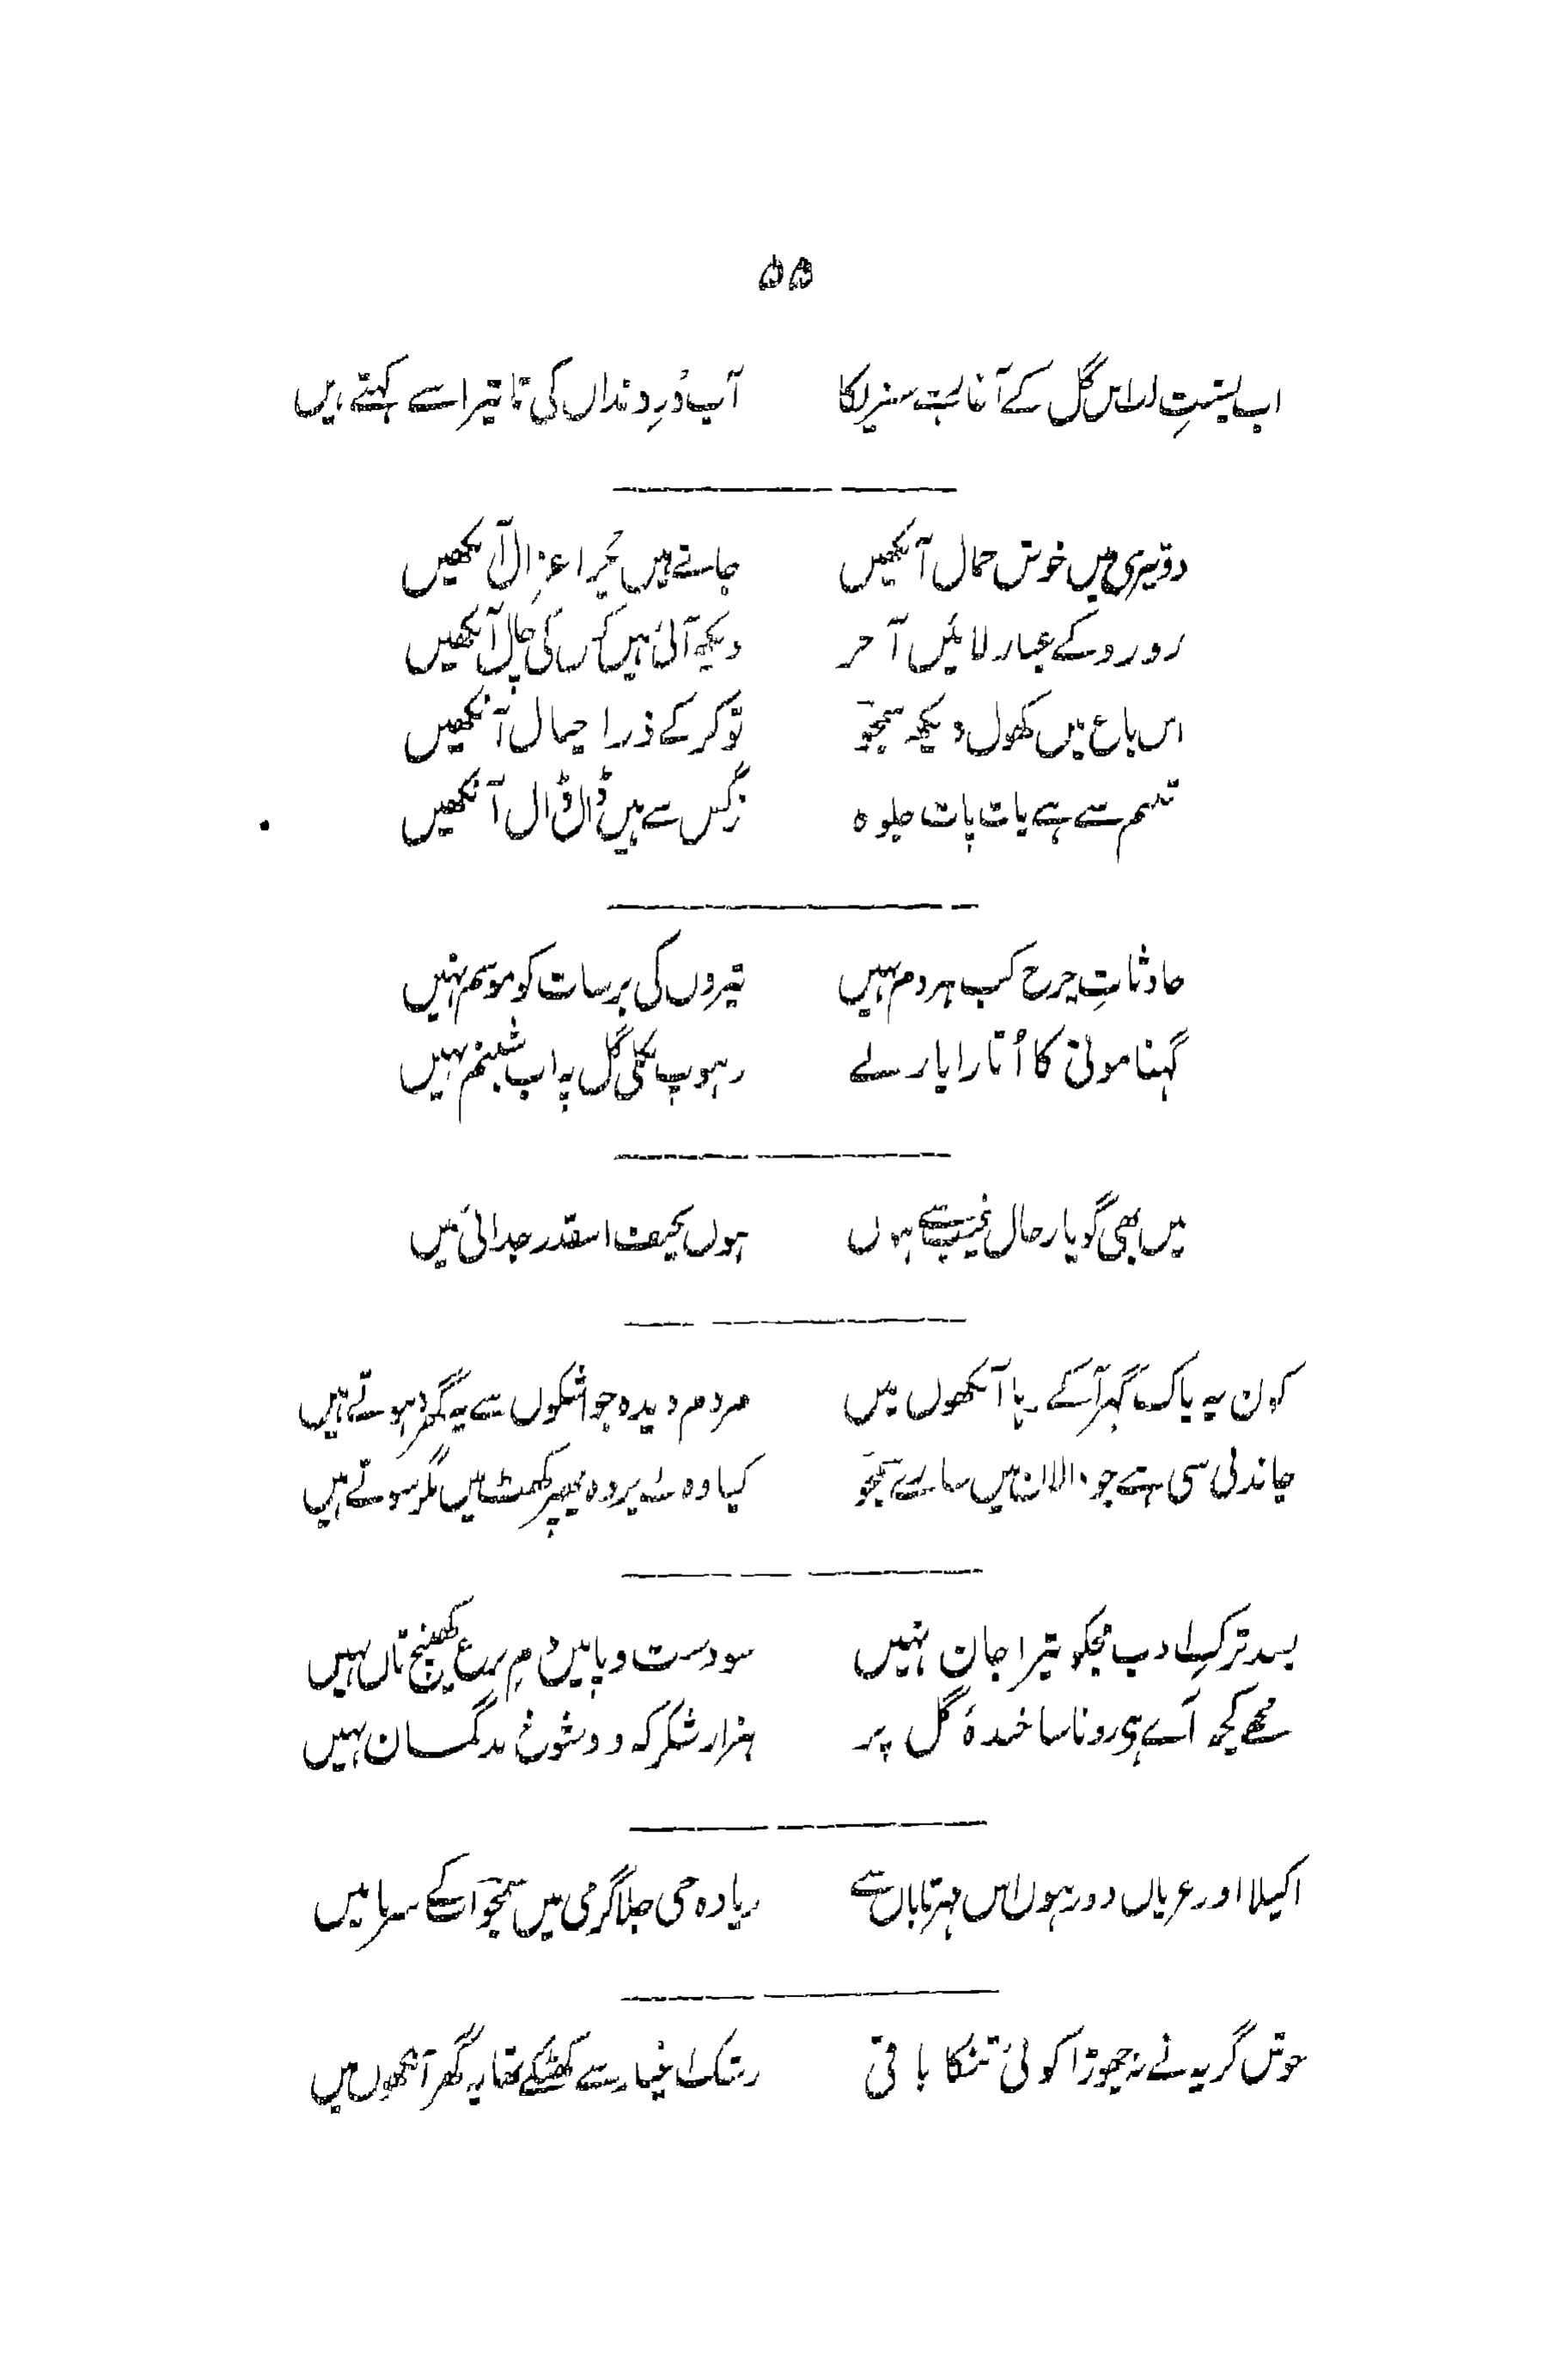 ۵۵
اب پشتِ لب اس گل کے آغاز سبزے کا آبِ دُرِ دنداں کی تاثیر اسے کہتے ہیں
دو تیری ہیں خوش جمال آنکھیں جانے ہیں چُرا غزال آنکھیں
رو رو کے غبار لائیں آخر دیکھ آئی ہیں کس کی چال آنکھیں
اس باغ میں کھول دیکھ سجّو تو کر کے ذرا خیال آنکھیں
شبنم سے ہے پات پات جلوہ نرگس سے ہیں ڈال ڈال آنکھیں
حادثاتِ چرخ کب ہر دم نہیں تیروں کی برسات کو موسم نہیں
گہنا موتی کا اُتارا یار نے دھوپ نکلی گل پہ اب شبنم نہیں
میں بھی گویا زحال غیب سے ہوں ہوں نحیف اسقدر جدائی میں
کون یہ پاک گہر آ کے رہا آنکھوں میں مردم دیدہ جو اشکوں سے یہ گھر دھوتے ہیں
چاندنی سی ہے جو دالان میں سارے سجّو کیا وہ بے پردہ چھپر کھٹ میں مگر سوتے ہیں
بسد ترکِ ادب مجکو تیرا جان نہیں سو دست و پا میں دمِ نزع کھینچ تان نہیں
مجھے کچھ آئے ہی رونا سا خندۂ گل پر ہزار شکر کہ وہ شوخ بدگمان نہیں
اکیلا اور عریاں دور ہوں اس مہر تاباں سے زیادہ جی جلا گرمی میں سجّو آ کے سرما میں
جوش گریہ نے نہ چھوڑا کوئی تنکا باقی رشک اغیار سے کھٹکے تھا یہ گھر آنکھوں میں